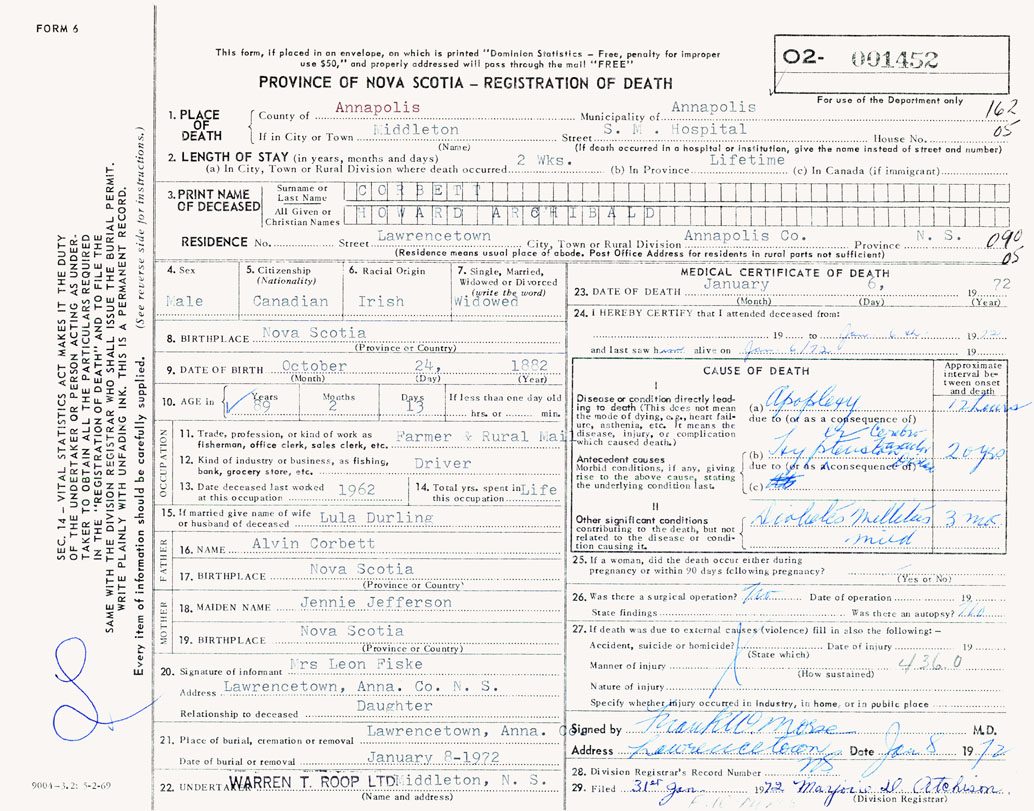 FORM 6
This form, if placed in an envelope, on which is printed "Dominion Statistics – Free, penalty for improper
use $50," and properly addressed will pass through the mail "FREE"
PROVINCE OF NOVA SCOTIA – REGISTRATION OF DEATH
02- 001452
For use of the Department only
162
05
1. PLACE OF DEATH
County of Annapolis Municipality of Annapolis
If in City or Town Middleton Street S. M. Hospital House No.
(Name) (If death occurred in a hospital or institution, give the name instead of street and number)
2. LENGTH OF STAY (in years, months and days)
(a) In City, Town or Rural Division where death occurred 2 Wks. (b) In Province Lifetime (c) In Canada (if immigrant)
3. PRINT NAME OF DECEASED
Surname or Last Name CORBETT
All Given or Christian Names HOWARD ARCHIBALD
RESIDENCE No. Street Lawrencetown City, Town or Rural Division Annapolis Co. Province N. S.
(Residence means usual place of abode. Post Office Address for residents in rural parts not sufficient)
090
05
4. Sex
Male
5. Citizenship
(Nationality)
Canadian
6. Racial Origin
Irish
7. Single, Married,
Widowed or Divorced
(write the word)
Widowed
8. BIRTHPLACE Nova Scotia
(Province or Country)
9. DATE OF BIRTH October 24, 1882
(Month) (Day) (Year)
10. AGE in Years 89 Months 2 Days 13 If less than one day old
hrs. or min.
OCCUPATION
11. Trade, profession, or kind of work as
fisherman, office clerk, sales clerk, etc. Farmer & Rural Mail
12. Kind of industry or business, as fishing,
bank, grocery store, etc. Driver
13. Date deceased last worked
at this occupation 1962
14. Total yrs. spent in
this occupation Life
15. If married give name of wife
or husband of deceased Lula Durling
FATHER
16. NAME Alvin Corbett
17. BIRTHPLACE Nova Scotia
(Province or Country)
MOTHER
18. MAIDEN NAME Jennie Jefferson
19. BIRTHPLACE Nova Scotia
(Province or Country)
20. Signature of informant Mrs Leon Fiske
Address Lawrencetown, Anna. Co. N. S.
Relationship to deceased Daughter
21. Place of burial, cremation or removal Lawrencetown, Anna. Co
Date of burial or removal January 8-1972
22. UNDERTA WARREN T. ROOP LTD Middleton, N. S.
(Name and address)
MEDICAL CERTIFICATE OF DEATH
23. DATE OF DEATH January 6, 1972
(Month) (Day) (Year)
24. I HEREBY CERTIFY that I attended deceased from:
19 to Jan 6th 1972
and last saw h alive on Jan 6/72 19
CAUSE OF DEATH
Approximate
interval be-
tween onset
and death
I
Disease or condition directly lead-
ing to death (This does not mean
the mode of dying, e.g., heart fail-
ure, asthenia, etc. It means the
disease, injury, or complication
which caused death.)
(a) Apoplexy 12 hours
due to (or as a consequence of)
Antecedent causes
Morbid conditions, if any, giving
rise to the above cause, stating
the underlying condition last.
(b) Hyptension 20 yrs
due to (or as a consequence of)
(c)
II
Other significant conditions
contributing to the death, but not
related to the disease or condi-
tion causing it.
Diabetes Mellitus 3 mo.
mild
25. If a woman, did the death occur either during
pregnancy or within 90 days following pregnancy?
(Yes or No)
26. Was there a surgical operation? no Date of operation 19
State findings Was there an autopsy? no
27. If death was due to external causes (violence) fill in also the following: –
Accident, suicide or homicide? Date of injury 19
(State which)
Manner of injury 436.0
(How sustained)
Nature of injury
Specify whether injury occurred in industry, in home, or in public place
Signed by Frank W Morse M.D.
Address Lawrencetown NS Date Jan 8 1972
28. Division Registrar's Record Number
29. Filed 31st Jan 1972 Marjorie D Atchison
(Division Registrar)
SEC. 14 – VITAL STATISTICS ACT MAKES IT THE DUTY
OF THE UNDERTAKER OR PERSON ACTING AS UNDER-
TAKER TO OBTAIN ALL THE PARTICULARS REQUIRED
IN THE "REGISTRATION OF DEATH" AND TO FILE THE
SAME WITH THE DIVISION REGISTRAR WHO SHALL ISSUE THE BURIAL PERMIT.
WRITE PLAINLY WITH UNFADING INK. THIS IS A PERMANENT RECORD.
Every item of information should be carefully supplied. (See reverse side for instructions.)
9004-3.2: 5-2-69